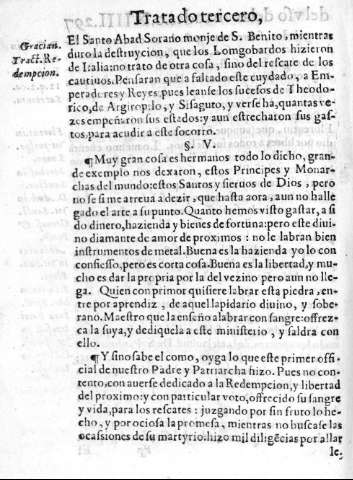 Tratado tercero,
Gracian.
Tract. Re-
dempcion.
El Santo Abad Sorano monje de S. Benito, mientras
duro la destruycion, que los Lomgobardos hizieron
de Italia no trato de otra cosa, sino del rescate de los
cautiuos. Pensaran que a faltado este cuydado, a Em-
peradores y Reyes, pues leanse los sucesos de Theodo-
rico, de Argiropilo, y Sisaguto, y verse ha, quantas ve-
zes empeñaron sus estados: y aun estrecharon sus gas-
tos, para acudir a este socorro.
§. V.
¶Muy gran cosa es hermanos todo lo dicho, gran-
de exemplo nos dexaron, estos Principes y Monar-
chas del mundo: estos Santos y sieruos de Dios, pero
no se si me atreua a dezir, que hasta aora, aun no halle
gado el arte a su punto. Quanto hemos visto gastar, a si
do dinero, hazienda y bienes de fortuna: pero este diui-
no diamante de amor de proximos: no le labran bien
instrumentos de metal. Buena es la hazienda yo lo con
confiesso, pero es corta cosa. Buena es la libertad, y mu-
cho es dar la propria por la del vezino pero aun no lle-
ga. Quien con primor quisiere labrar esta piedra, en-
tre por aprendiz, de aquel lapidario diuino, y sobe-
rano. Maestro que la enseño a labrar con sangre: offrez-
ca la suya, y dediquela a este ministerio, y saldra con
ello.
¶Y si no sabe el como, oyga lo que este primer offi-
cial de nuestro Padre y Patriarcha hizo. Pues no con-
tento, con auerse dedicado a la Redempcion, y libertad
del proximo: y con particular voto, offrecido su sangre
y vida, para los rescates: juzgando por sin fruto lo he-
cho, y por ociosa la promesa, mientras no buscase las
ocassiones de su martyrio: hizo mil diligẽcias por allar
le: